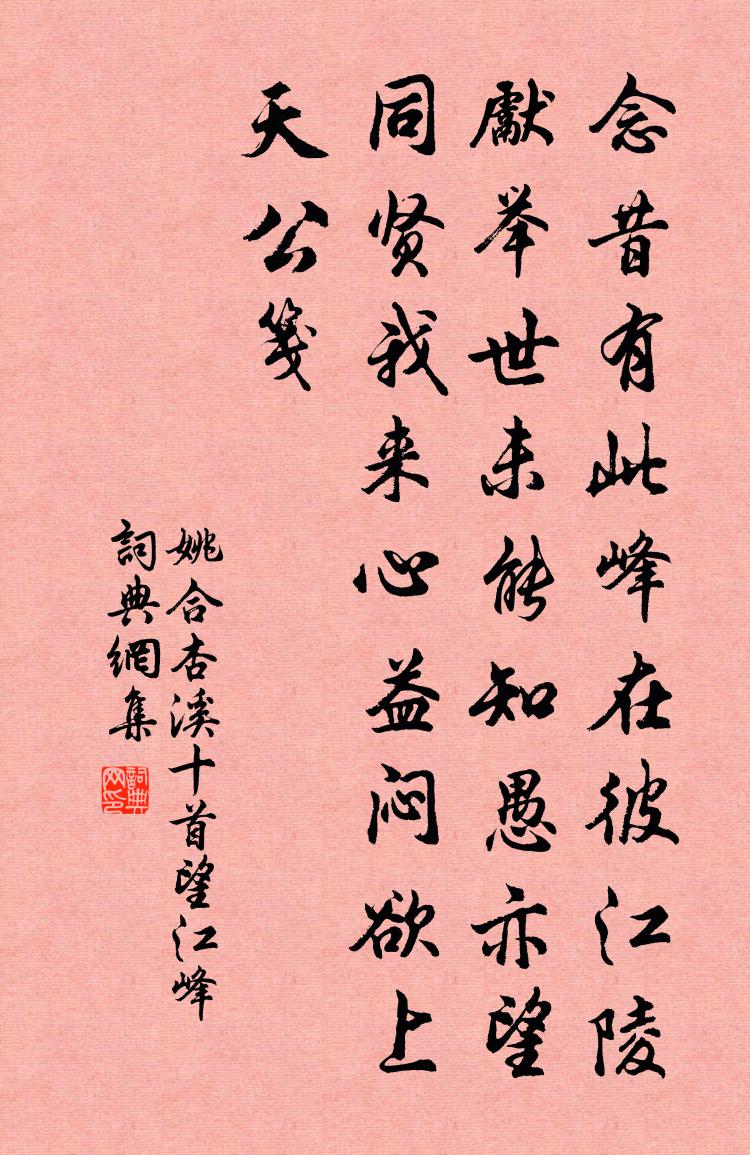 念昔有此峰在彼江陵
巘举世未能知愚亦望
同贤我来心益闷欲上
天公笺
姚合杏溪十首望江峰
詞典網集
詞典
网印